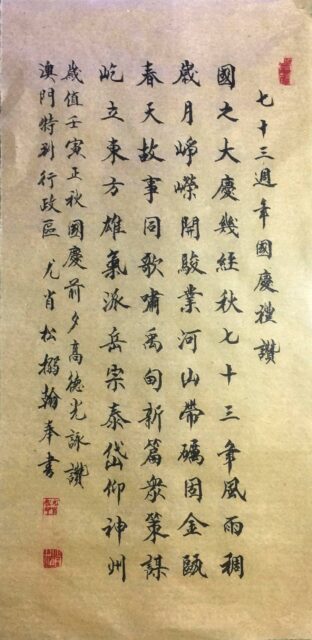 七十三週年國慶禮讚
國之大慶幾經秋七十三年風雨稠
歲月崢嶸開駿業河山帶礪固金甌
春天故事同歌嘯禹甸新篇衆策謀
屹立東方雄氣派岳宗泰岱仰神州
歲值壬寅正秋國慶前夕高德光詠讚
澳門特別行政區 尤肖松翰奉書